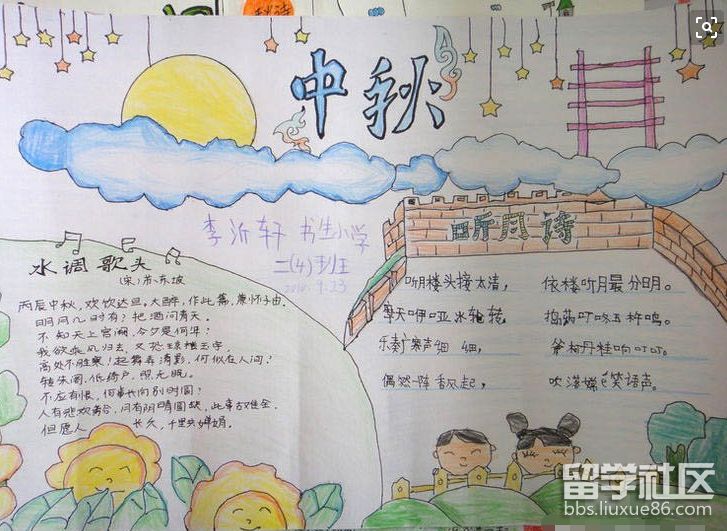 中秋
李沂轩 书生小学
二(4)班
水调歌头
(宋)苏东坡
丙辰中秋,欢饮达旦。大醉,作此篇,兼怀子由。
明月几时有?把酒问青天。
不知天上宫阙,今夕是何年?
我欲乘风归去,又恐琼楼玉宇,
高处不胜寒!起舞弄清影,何似在人间?
转朱阁,低绮户,照无眠。
不应有恨,何事长向别时圆?
人有悲欢离合,月有阴晴圆缺,此事古难全。
但愿人长久,千里共婵娟。
听月诗
听月楼头接太清,依楼听月最分明。
摩天咿哑冰轮转,捣药叮咚玉杵鸣。
乐奏广寒声细细,斧柯丹桂响叮叮。
偶然一阵香风起,吹落嫦笑语声。
留学社区
bbs.liuxue86.com